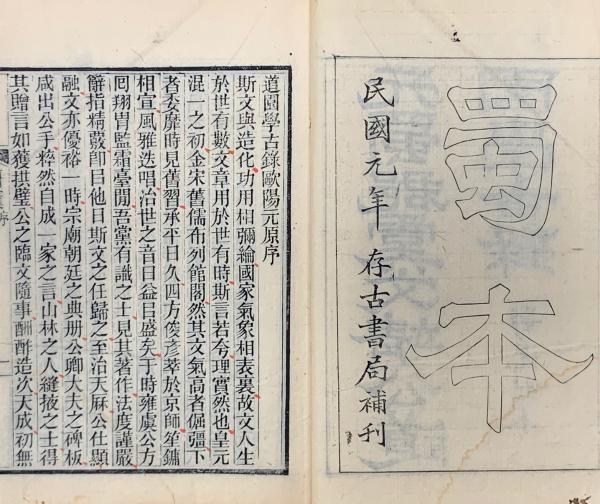 蜀本
民國元年存古書局補刊
道園學古錄歐陽元原序
斯文與造化功用相彌綸國家氣象相表裏故文人生
於世有數文章用於世有時斯言若夸理實然也皇元
混一之初金宋舊儒布列館閣然其文氣高者倔彊下
者委靡時見舊習承平日久四方俊彥萃於京師笙鏞
相宣風雅迭唱治世之音日益日盛矣于時雍虞公方
囘翔冑監霜臺閒吾黨有識之士見其著作法度謹嚴
辭指精覈卽曰他日斯文之任歸之至治天厤公仕顯
融文亦優裕一時宗廟朝廷之典册公卿大夫之碑板
咸出公手粹然自成一家之言山林之人縫掖之士得
其贈言如獲拱璧公之臨文隨事酬酢造次天成初無